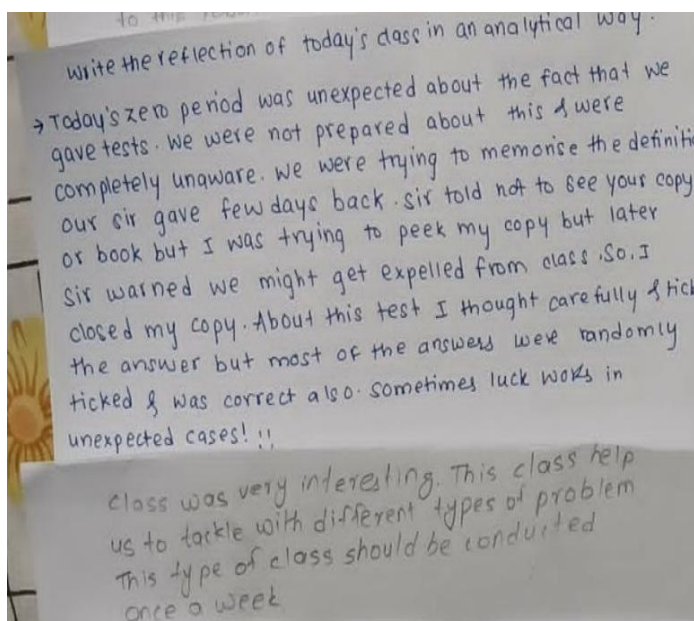 to this
Write the reflection of today's class in an analytical way.
→ Today's zero period was unexpected about the fact that we
gave tests. We were not prepared about this & were
completely unaware. We were trying to memorise the definitio
our sir gave few days back. Sir told not to see your copy
or book but I was trying to peek my copy but later
Sir warned we might get expelled from class. So, I
closed my copy. About this test I thought carefully & tick
the answer but most of the answers were randomly
ticked & was correct also. Sometimes luck works in
unexpected cases! !!
Class was very interesting. This class help
us to tackle with different types of problem
This type of class should be conducted
once a week